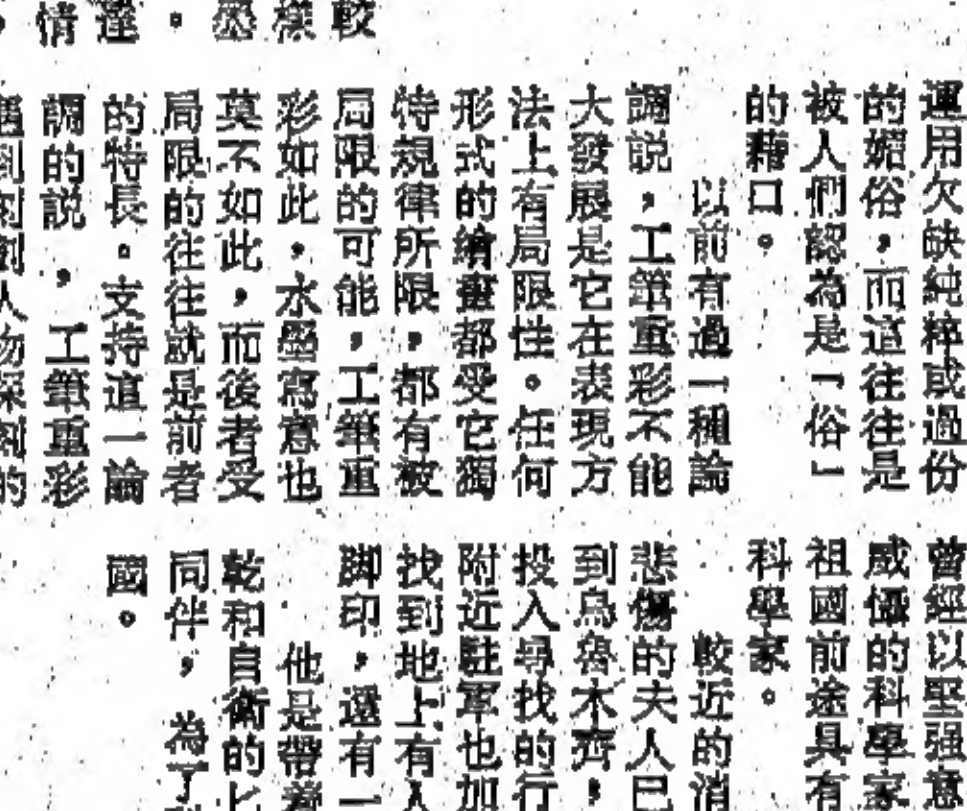 較
樣
墨
。
達
情
運用欠缺純粹或過份
的媚俗，而這往往是
被人們認為是「俗」
的藉口。
以前有過一種論
調説，工筆重彩不能
大發展是它在表現方
法上有局限性。任何
形式的繪畫都受它獨
特規律所限，都有被
局限的可能，工筆重
彩如此，水墨寫意也
莫不如此，而後者受
局限的往往就是前者
的特長。支持這一論
調的説，工筆重彩
遇到刻劃人物深刻的
曾經以堅强意
威懾的科學家
祖國前途具有
科學家。
較近的消
悲傷的夫人已
到烏魯木齊，
投入尋找的行
附近駐軍也加
找到地上有人
脚印，還有一
他是帶着
乾和自衛的匕
同伴，為了
國。